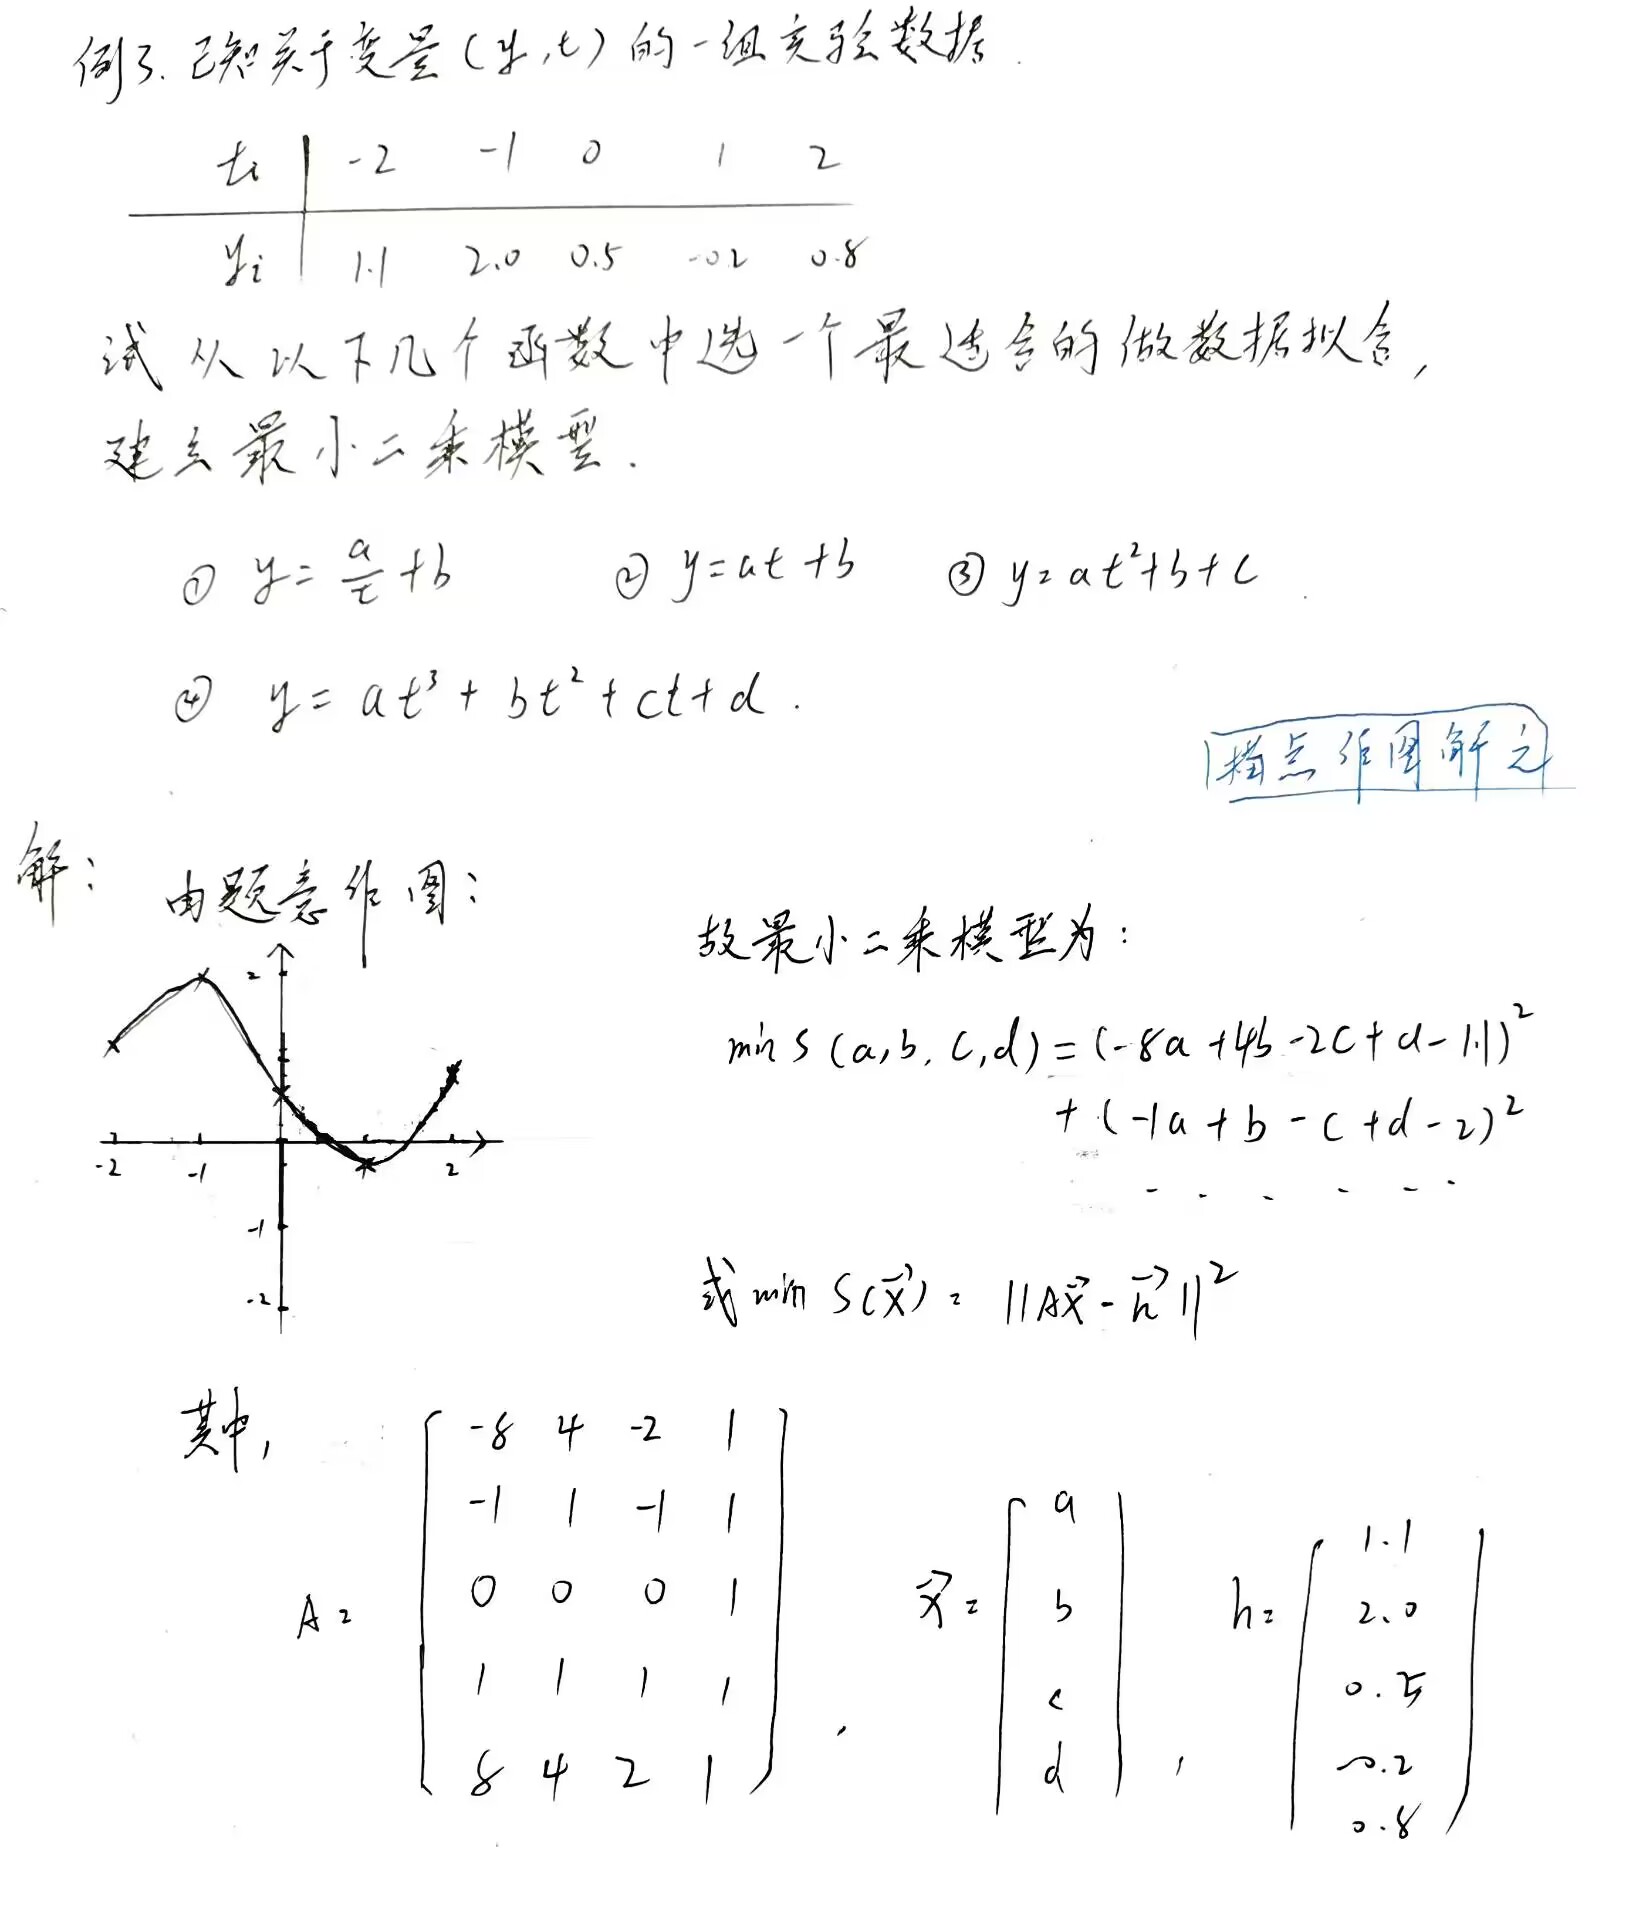 例3. 已知关于变量(y,t)的一组实验数据.
ti | -2 -1 0 1 2
yi | 1.1 2.0 0.5 -0.2 0.8
试从以下几个函数中选一个最适合的做数据拟合,
建立最小二乘模型.
① y=a/t+b ② y=at+b ③ y=at²+b+c
④ y=at³+bt²+ct+d.
描点作图解之
解: 由题意作图:
2
-2 -1 2
-1
-2
故最小二乘模型为:
min S(a,b,c,d)=(-8a+4b-2c+d-1.1)²
+(-1a+b-c+d-2)²
- - - - - -
或 min S(x⃗)=||Ax⃗-h⃗||²
其中,
A= [ -8 4 -2 1
-1 1 -1 1
0 0 0 1
1 1 1 1
8 4 2 1 ],
x⃗= [ a
b
c
d ],
h= [ 1.1
2.0
0.5
-0.2
0.8 ]